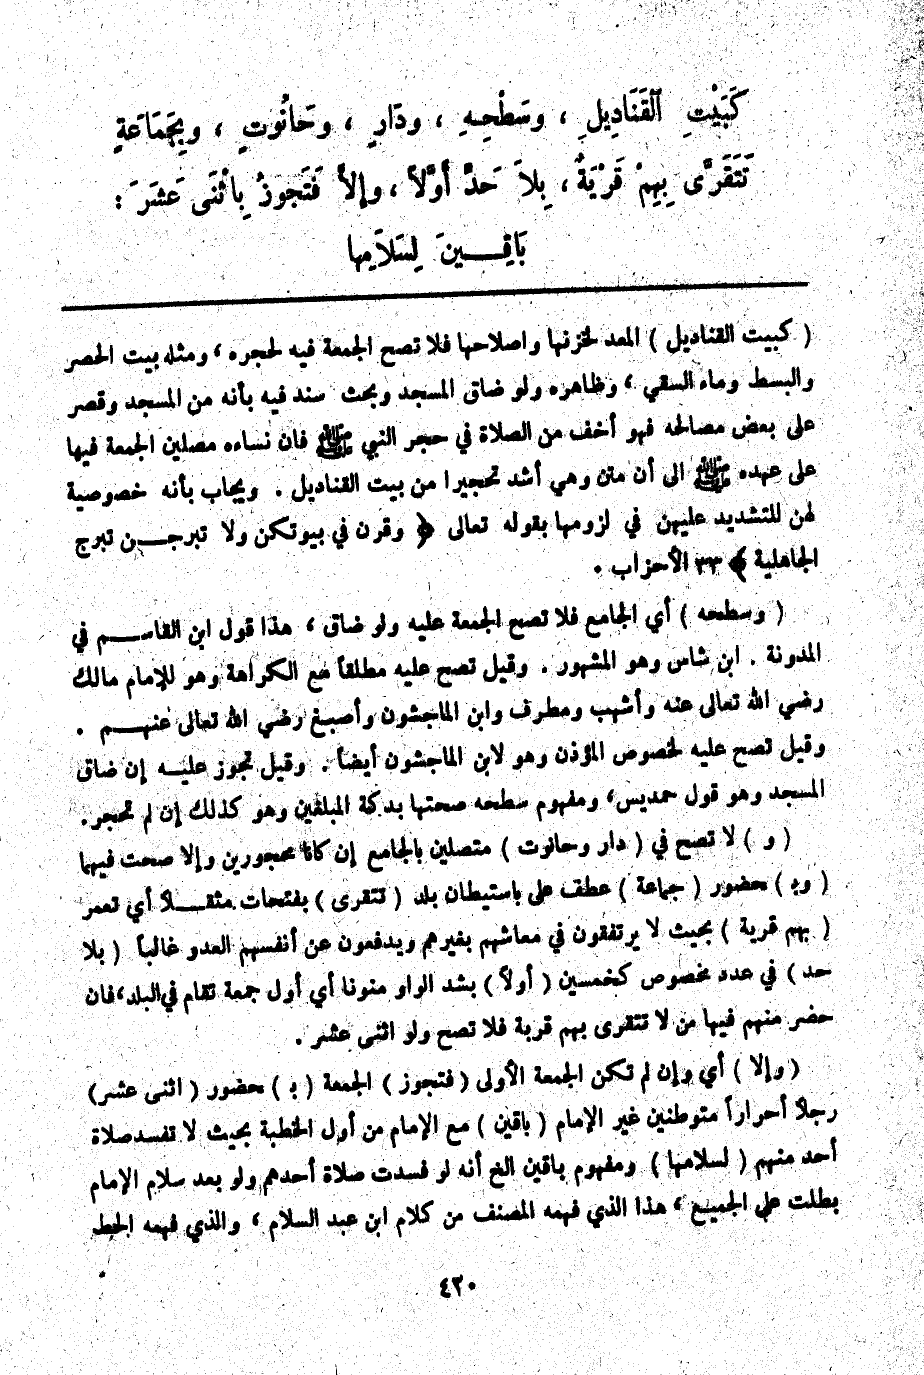 كَبَيْتِ ٱلْقَنَادِيلِ ، وسَطْحِهِ ، ودَارٍ ، وحَانُوتٍ ، وبِجَمَاعَةٍ
تَتَقَرَّى بِهِمْ قَرْيَةٌ ، بِلاَ حَدٍّ أوَّلاً ، وإلاَّ فَتَجوزُ بِاثْنَى عَشَرَ :
بَاقِينَ لِسَلاَمِها
( كبيت القناديل ) المعد لخزنها واصلاحها فلا تصح الجمعة فيه لحجره ، ومثله بيت الحصر
والبسط وماء السقي ، وظاهره ولو ضاق المسجد وبحث سند فيه بأنه من المسجد وقصر
على بعض مصالحه فهو أخف من الصلاة في حجر النبي ﷺ فان نساءه مصلين الجمعة فيها
على عهده ﷺ الى أن متن وهي أشد تحجيرا من بيت القناديل . ويجاب بأنه خصوصية
لهن للتشديد عليهن في لزومها بقوله تعالى ﴿ وقرن في بيوتكن ولا تبرجن تبرج
الجاهلية ﴾ ٣٣ الأحزاب .
( وسطحه ) أي الجامع فلا تصح الجمعة عليه ولو ضاق ، هذا قول ابن القاسم في
المدونة . ابن شاس وهو المشهور . وقيل تصح عليه مطلقاً مع الكراهة وهو للإمام مالك
رضي الله تعالى عنه وأشهب ومطرف وابن الماجشون وأصبغ رضي الله تعالى عنهم .
وقيل تصح عليه لخصوص المؤذن وهو لابن الماجشون أيضاً . وقيل تجوز عليه إن ضاق
المسجد وهو قول حمديس، ومفهوم سطحه صحتها بدكة المبلغين وهو كذلك إن لم تحجر.
( و ) لا تصح في ( دار وحانوت ) متصلين بالجامع إن كانا محجورين وإلا صحت فيهما
( وبـ ) حضور ( جماعة ) عطف على باستيطان بلد ( تتقرى ) بفتحات مثقلاً أي تعمر
( بهم قرية ) بحيث لا يرتفقون في معاشهم بغيرهم ويدفعون عن أنفسهم العدو غالباً ( بلا
حد ) في عدد مخصوص كخمسين ( أولاً ) بشد الواو منونا أي أول جمعة تقام في البلد، فان
حضر منهم فيها من لا تتقرى بهم قرية فلا تصح ولو اثنى عشر .
( وإلا ) أي وإن لم تكن الجمعة الأولى ( فتجوز ) الجمعة ( بـ ) حضور ( اثنى عشر )
رجلاً أحراراً متوطنين غير الإمام ( باقين ) مع الإمام من أول الخطبة بحيث لا تفسد صلاة
أحد منهم ( لسلامها ) ومفهوم باقين الخ أنه لو فسدت صلاة أحدهم ولو بعد سلام الإمام
بطلت على الجميع ، هذا الذي فهمه المصنف من كلام ابن عبد السلام ، والذي فهمه الحط
٤٢٠